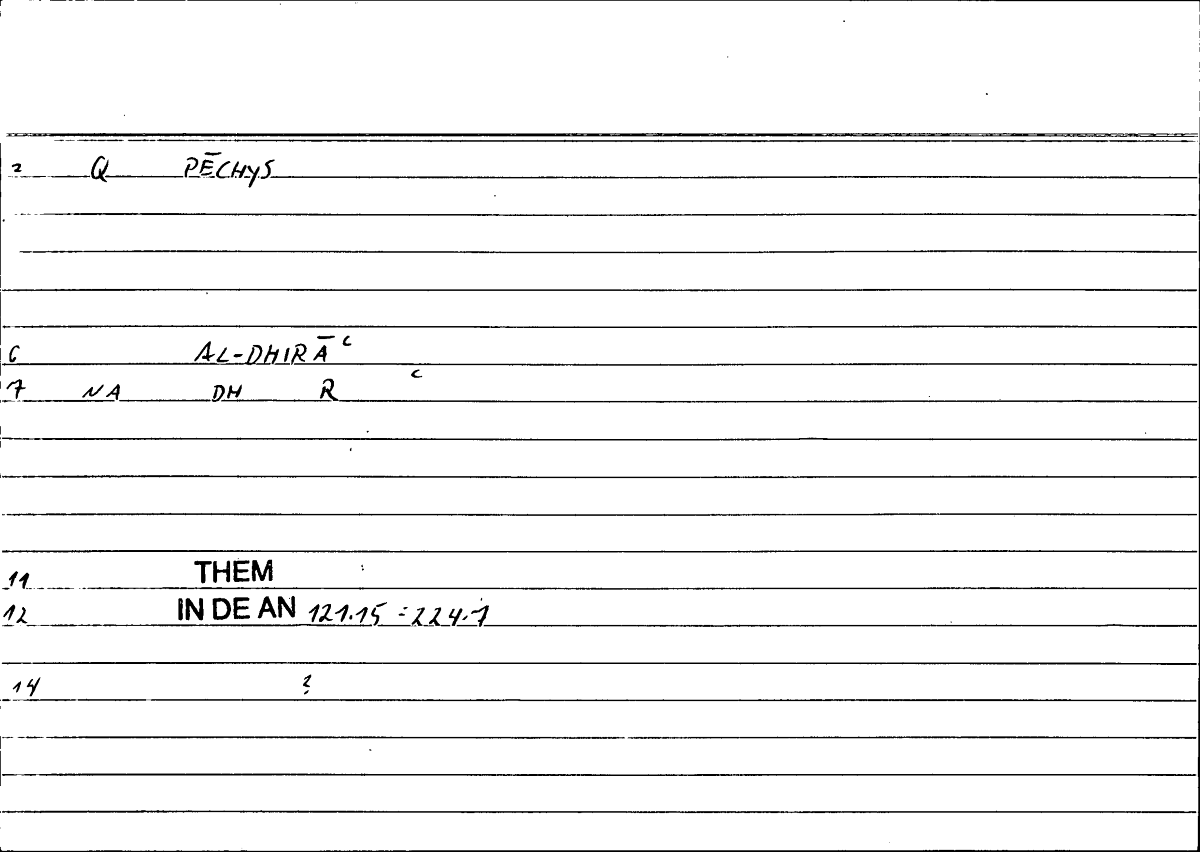 2 Q PĒCHYS
6 AL-DHIRĀʿ
7 NA DH R ʿ
11 THEM
12 IN DE AN 121.15 = 224.7
14 ?